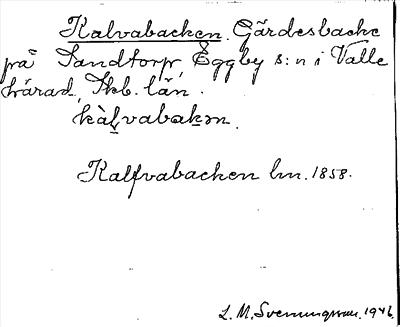 Kalvabacken. Gärdesbacke
på Sandtorp, Eggby s:n i Valle
härad, Skb. län.
kàl̠vabak̠ən.
Kalfvabacken lm. 1858.
L. M. Svenungsson. 1946.